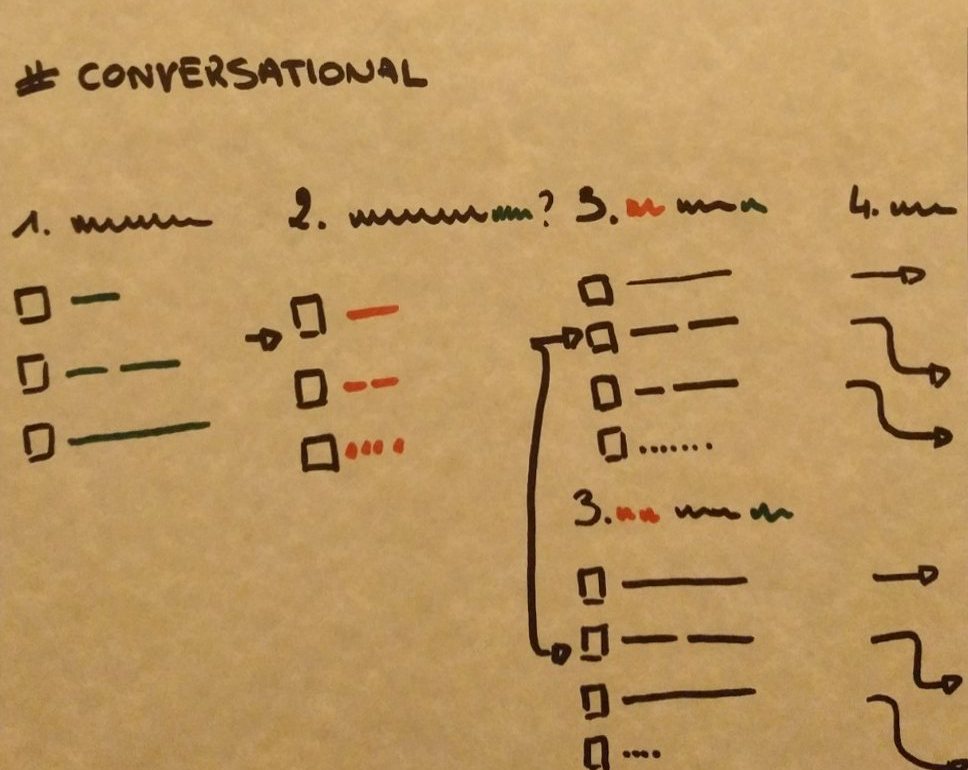 # CONVERSATIONAL
1.
2. ?
3.
4.
3.